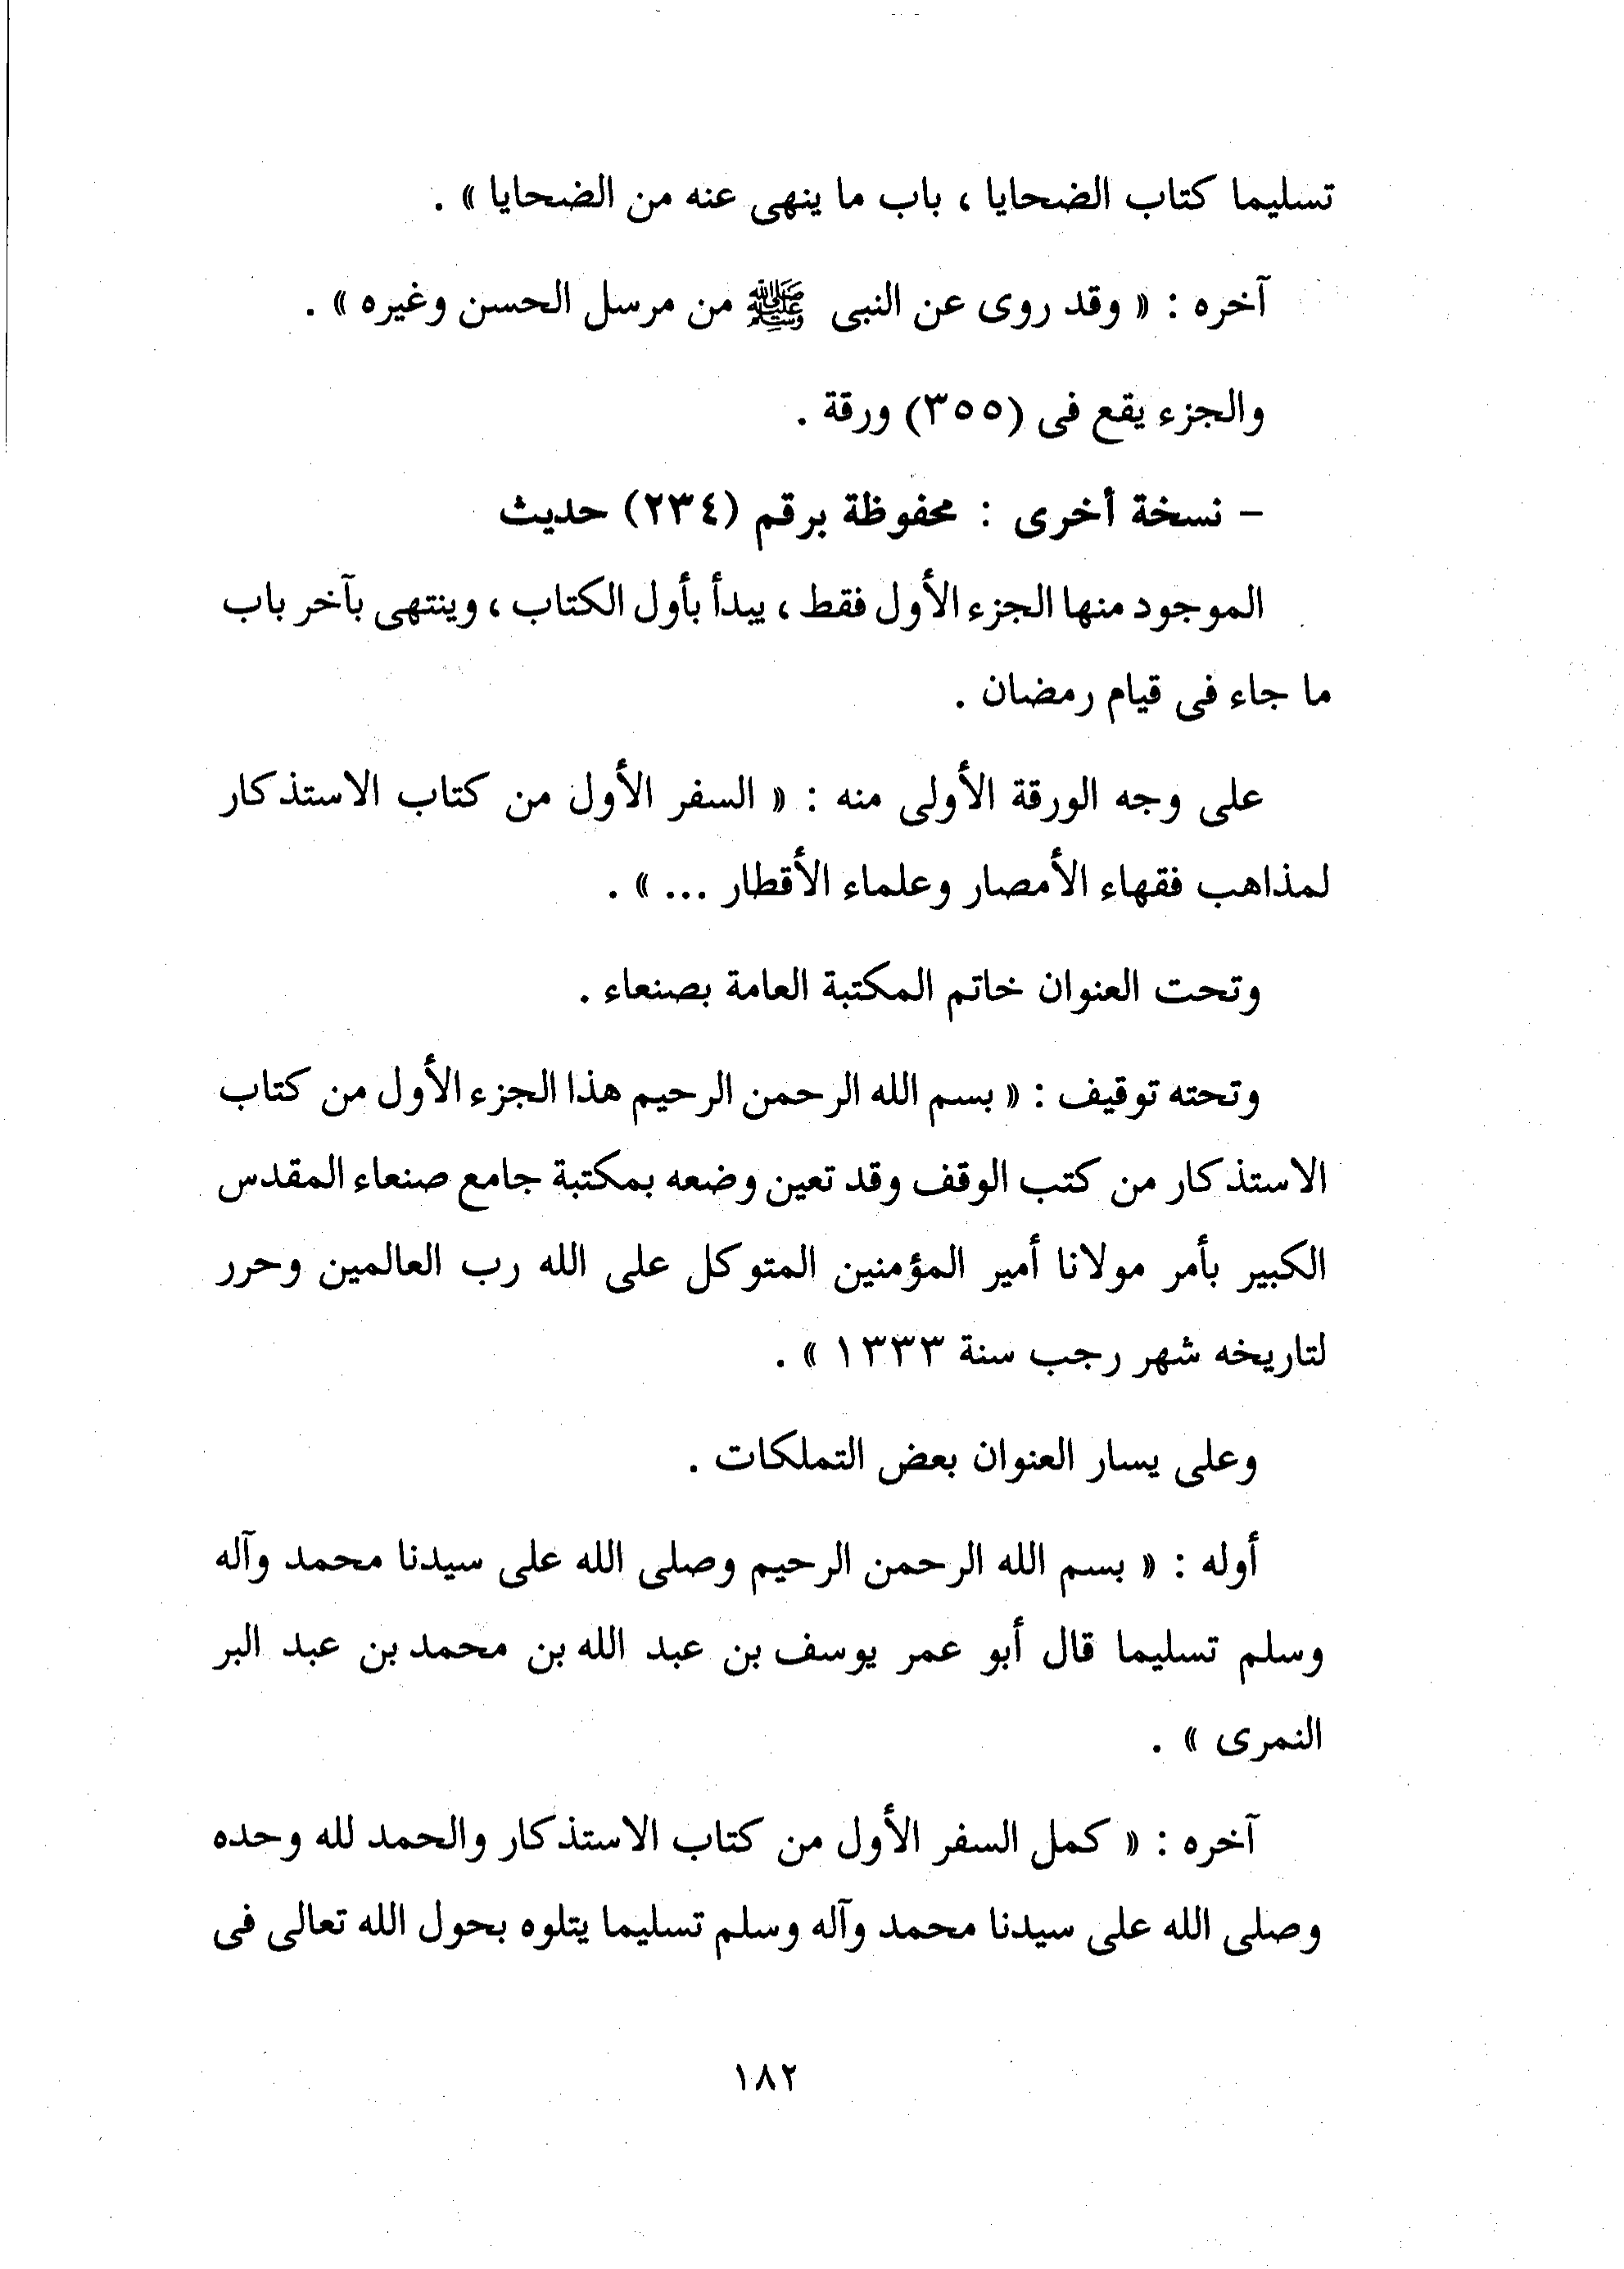 تسليما كتاب الضحايا ، باب ما ينهى عنه من الضحايا » .
آخره : « وقد روى عن النبى ﷺ من مرسل الحسن وغيره » .
والجزء يقع فى (٣٥٥) ورقة .
- نسخة أخرى : محفوظة برقم (٢٣٤) حديث
الموجود منها الجزء الأول فقط ، يبدأ بأول الكتاب ، وينتهى بآخر باب
ما جاء فى قيام رمضان .
على وجه الورقة الأولى منه : « السفر الأول من كتاب الاستذكار
لمذاهب فقهاء الأمصار وعلماء الأقطار ... » .
وتحت العنوان خاتم المكتبة العامة بصنعاء .
وتحته توقيف : « بسم الله الرحمن الرحيم هذا الجزء الأول من كتاب
الاستذكار من كتب الوقف وقد تعين وضعه بمكتبة جامع صنعاء المقدس
الكبير بأمر مولانا أمير المؤمنين المتوكل على الله رب العالمين وحرر
لتاريخه شهر رجب سنة ١٣٣٣ » .
وعلى يسار العنوان بعض التملكات .
أوله : « بسم الله الرحمن الرحيم وصلى الله على سيدنا محمد وآله
وسلم تسليما قال أبو عمر يوسف بن عبد الله بن محمد بن عبد البر
النمرى » .
آخره : « كمل السفر الأول من كتاب الاستذكار والحمد لله وحده
وصلى الله على سيدنا محمد وآله وسلم تسليما يتلوه بحول الله تعالى فى
١٨٢